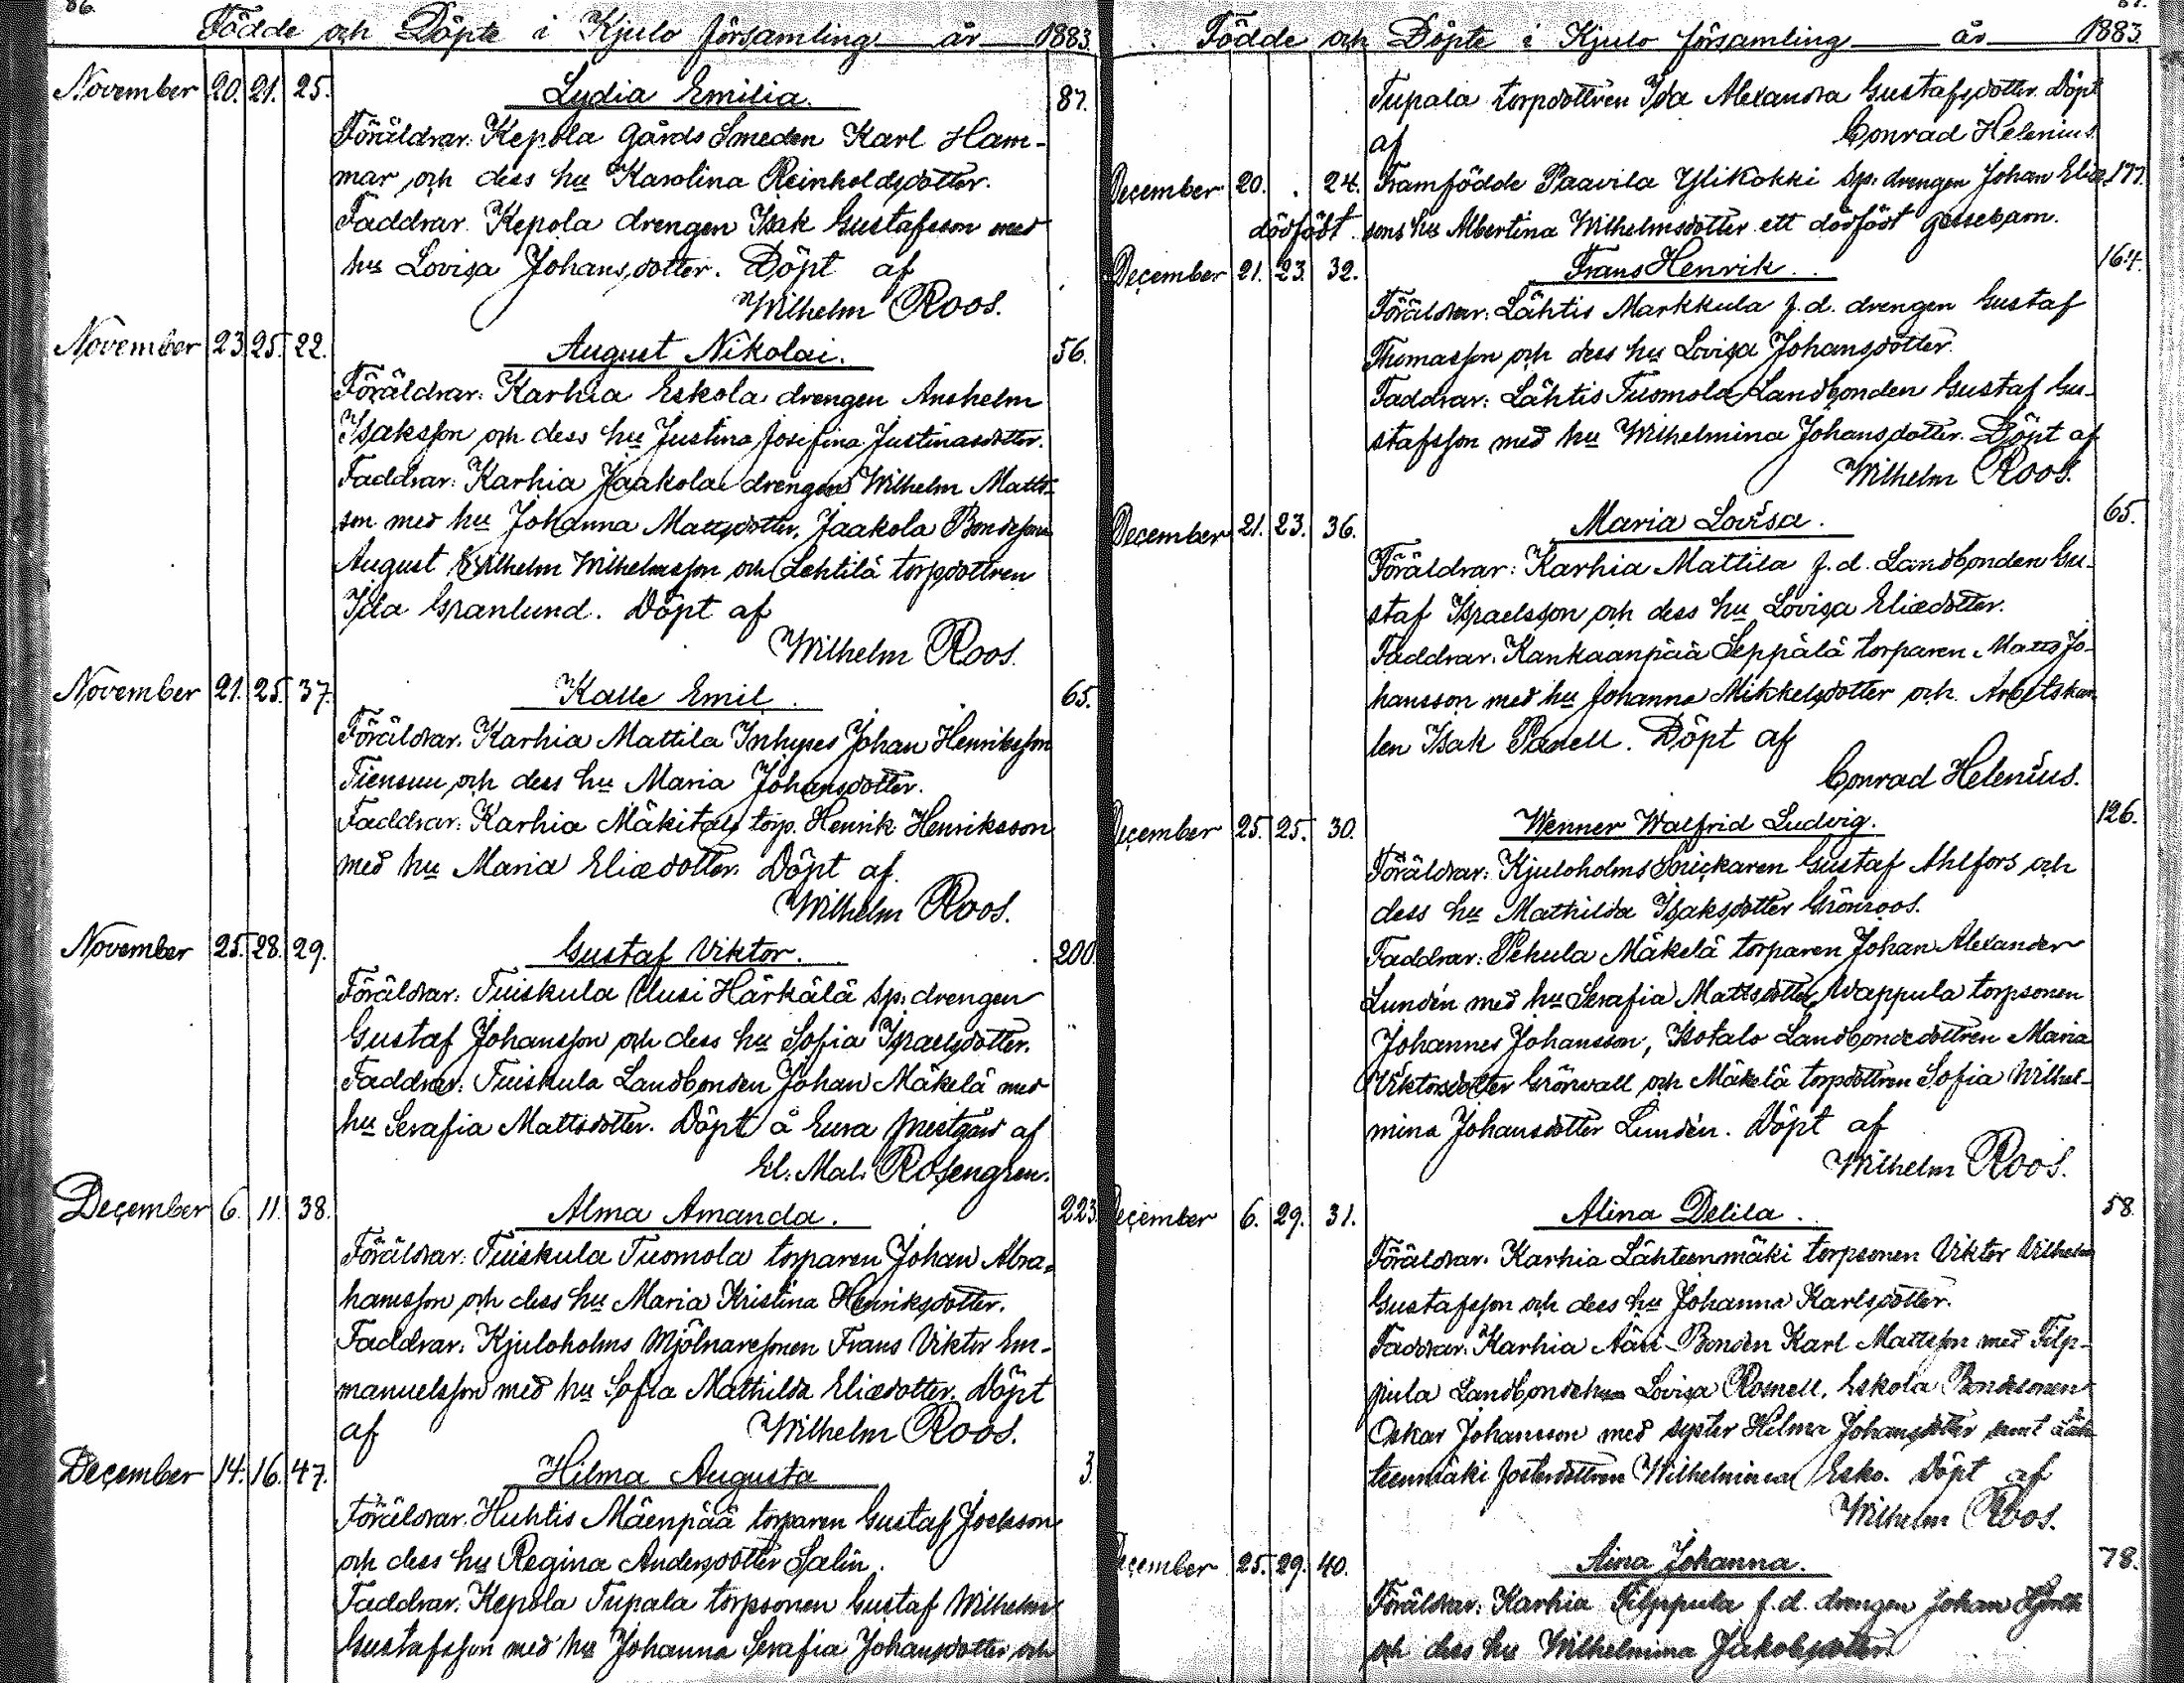 86.
Födde och Döpte i Kjulo församling år 1883.
November 20. 21. 25. Lydia Emilia. 87.
Föräldrar: Kepola Gårds Smeden Karl Ham-
mar och dess hu Karolina Reinholdsdotter.
Faddrar. Kepola drengen Isak Gustafsson med
hu Lovisa Johansdotter. Döpt af
Wilhelm Roos.
November 23. 25. 22. August Nikolai. 56.
Föräldrar: Karhia Eskola drengen Anshelm
Isaksson och dess hu Justina Josefina Justinasdotter.
Faddrar: Karhia Jaakola drengen Wilhelm Matts-
son med hu Johanna Mattsdotter, Jaakola Bondesonen
August Wilhelm Wilhelmsson och Lehtilä torpdottren
Ida Granlund. Döpt af
Wilhelm Roos.
November 21. 25. 37. Kalle Emil. 65.
Föräldrar. Karhia Mattila Inhyses Johan Henriksson
Tiensuu och dess hu Maria Johansdotter.
Faddrar: Karhia Mäkitalo torp. Henrik Henriksson
med hu Maria Eliædotter. Döpt af.
Wilhelm Roos.
November 25. 28. 29. Gustaf Viktor. 200.
Föräldrar: Tuiskula Uusi Härkälä sp: drengen
Gustaf Johansson och dess hu Sofia Israelsdotter.
Faddrar: Tuiskula Landbonden Johan Mäkelä med
hu Serafia Mattsdotter. Döpt å Eura prestgård af
El. Mal. Rosengren.
December 6. 11. 38. Alma Amanda. 223.
Föräldrar: Tuiskula Tuomola torparen Johan Abra-
hamsson och dess hu Maria Kristina Henriksdotter.
Faddrar: Kjuloholms Mjölnaresonen Frans Viktor Em-
manuelsson med hu Sofia Mathilda Eliædotter. Döpt
af Wilhelm Roos.
December 14. 16. 47. Hilma Augusta 3.
Föräldrar. Huhtis Mäenpää torparen Gustaf Joelsson
och dess hu Regina Andersdotter Salin.
Faddrar. Kepola Tupala torpsonen Gustaf Wilhelm
Gustafsson med hu Johanna Serafia Johansdotter och
87.
Födde och Döpte i Kjulo församling år 1883.
Tupala torpdottren Ida Alexandra Gustafsdotter. Döpt
af Conrad Helenius.
December 20. 24. Framfödde Paavila Ylikokki sp: drengen Johan Eliæ- 177.
dödfödt. sons hu Albertina Wilhelmsdotter ett dödfödt gossebarn.
December 21. 23. 32. Frans Henrik. 164.
Föräldrar: Lähtis Markkula f.d. drengen Gustaf
Thomasson och dess hu Lovisa Johansdotter.
Faddrar: Lähtis Tuomola Landbonden Gustaf Gu-
stafsson med hu Wilhelmina Johansdotter. Döpt af
Wilhelm Roos.
December 21. 23. 36. Maria Lovisa. 65.
Föräldrar: Karhia Mattila f.d. Landbonden Gu-
staf Israelsson och dess hu Lovisa Eliædotter.
Faddrar. Kankaanpää Seppälä torparen Matts Jo-
hansson med hu Johanna Mikkelsdotter och Arbetskar-
len Isak Panell. Döpt af
Conrad Helenius.
December 25. 25. 30. Werner Walfrid Ludvig. 126.
Föräldrar: Kjuloholms Snickaren Gustaf Ahlfors och
dess hu Mathilda Isaksdotter Grönroos.
Faddrar: Pehula Mäkelä torparen Johan Alexander
Lundén med hu Serafia Mattsdotter, Wappula torpsonen
Johannes Johansson, Kotalo Landbondedottren Maria
Viktorsdotter Grönvall och Mäkelä torpdottren Sofia Wilhel-
mina Johansdotter Lundén. Döpt af
Wilhelm Roos.
December 6. 29. 31. Alina Delila. 58.
Föräldrar. Karhia Lähteenmäki torpsonen Viktor Vilhelm
Gustafsson och dess hu Johanna Karlsdotter.
Faddrar. Karhia Bonden Karl Mattsson med Filp-
pula Landbondehu Lovisa Romell, Eskola Bondesonen
Oskar Johansson med syster Hilma Johansdotter samt Läh-
teenmäki fosterdottren Wilhelmina Esko. Döpt af
Wilhelm Roos.
December 25. 29. 40. Aina Johanna. 78.
Föräldrar: Karhia Filppula f.d. drengen Johan
och dess hu Wilhelmina Jakobsdotter.